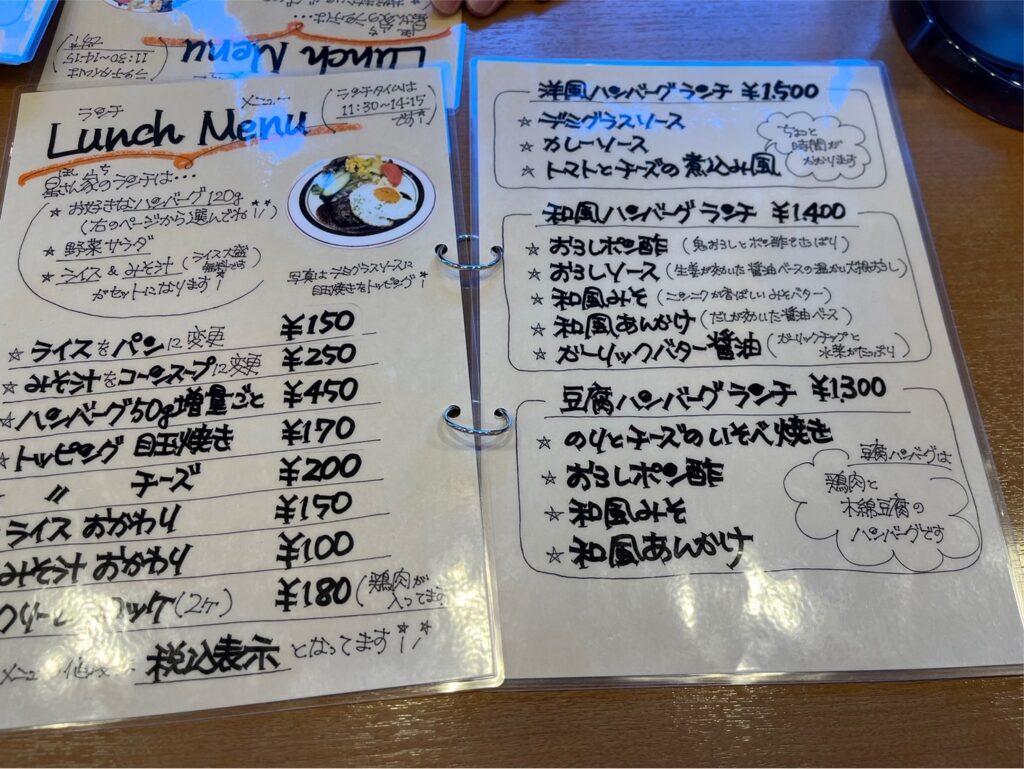 ランチ メニュー
Lunch Menu
ランチタイムは
11:30~14:15
です!
ぼし ち
星せん家のランチは…
★ お好きなハンバーグ 120g
(右のページから選んでね!!)
★ 野菜サラダ
★ ライス & みそ汁 (ライス大盛
無料です)
がセットになります!
写真は デミグラスソースに
目玉焼きをトッピング!
☆ ライスをパンに変更 ¥150
☆ みそ汁をコーンスープに変更 ¥250
☆ ハンバーグ50g増量ごと ¥450
☆ トッピング 目玉焼き ¥170
〃 チーズ ¥200
ライス おかわり ¥150
みそ汁 おかわり ¥100
(2ヶ) ¥180 (鶏肉が
入ってます
税込表示 となってます!!
洋風ハンバーグ ランチ ¥1,500
☆ デミグラスソース
☆ カレーソース
☆ トマトとチーズの煮込み風
ちょっと
時間が
かかります
和風ハンバーグ ランチ ¥1,400
☆ おろしポン酢 (鬼おろしとポン酢でさっぱり)
☆ おろしソース (生姜が効いた醤油ベースの温かい大根おろし)
☆ 和風みそ (ニンニクが香ばしいみそバター)
☆ 和風あんかけ (だしが効いた醤油ベース)
☆ ガーリックバター醤油 (ガーリックチップと
水菜がたっぷり)
豆腐ハンバーグ ランチ ¥1,300
☆ のりとチーズのいそべ焼き
☆ おろしポン酢
☆ 和風みそ
☆ 和風あんかけ
豆腐ハンバーグは
鶏肉と
木綿豆腐の
ハンバーグです
Lunch Menu
ランチタイムは
11:30~14:15
です!